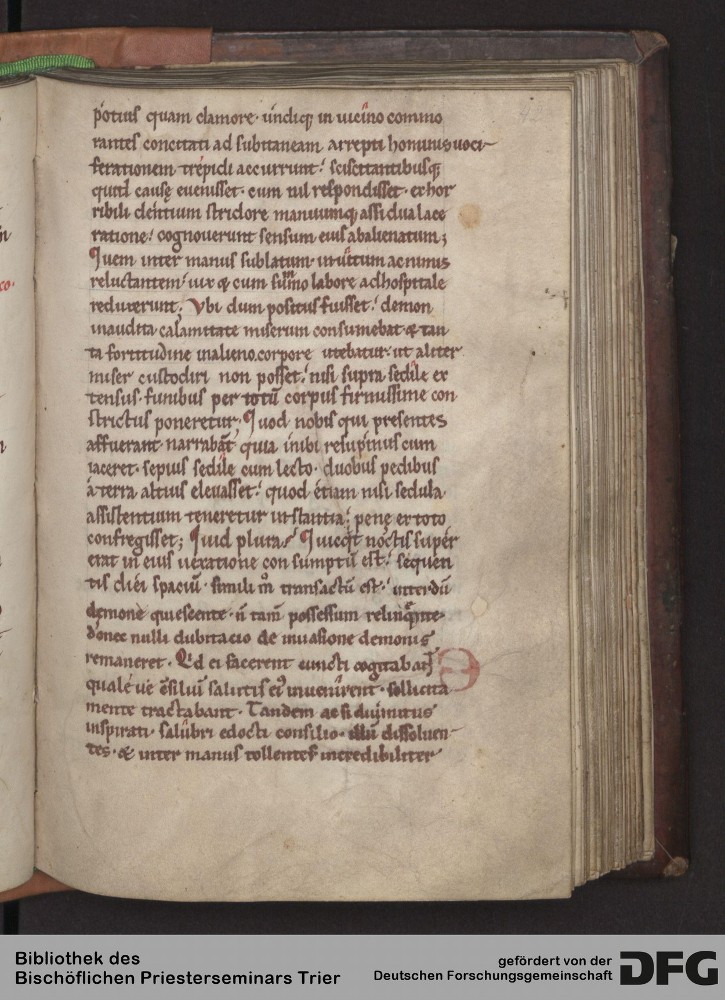 potius quam clamore · undiq; in uicino commo
rantes concitati ad subitaneam arrepti hominis uoci
ferationem trepidi accurrunt. sciscitantibusq;
quid causę euenisset · cum nil respondisset · ex hor
ribili dentium stridore manuumq; assidua lace
ratione · cognouerunt sensum eius abalienatum;
Quem inter manus sublatum · inuitum ac nimis
reluctantem · uix & cum summo labore ad hospitale
reduxerunt. Vbi dum positus fuisset · demon
inaudita calamitate miserum consumebat & tan
ta fortitudine in alieno corpore utebatur · ut aliter
miser custodiri non posset · nisi supra sedile ex
tensus · funibus per totũ corpus firmissime con
strictus poneretur; Quod nobis qui presentes
affuerant · narrabãt quia inibi resupinus cum
iaceret · sepius sedile cum lecto · duobus pedibus
a terra altius eleuasset · quod etiam nisi sedula
assistentium teneretur instantia · pene ex toto
confregisset; Quid plura? Quicq̇d noctis super
erat in eius uexatione consumptũ est · sequen
tis diei spaciũ · simili m̊ transactũ est · interdũ
demone quiescente · ñ tam̃ possessum relinq̃nte ·
donec nulli dubitacio de inuasione demonis
remaneret · Qd ei facerent cuncti cogitabant
quale ůe c̃siliũ salutis ei' inuenirent · sollicita
mente tractabant · Tandem ac si diuinitus
inspirati · salubri edocti consilio · illũ dissoluen
tes · & inter manus tollentes incredibiliter
Bibliothek des
Bischöflichen Priesterseminars Trier
gefördert von der
Deutschen Forschungsgemeinschaft DFG